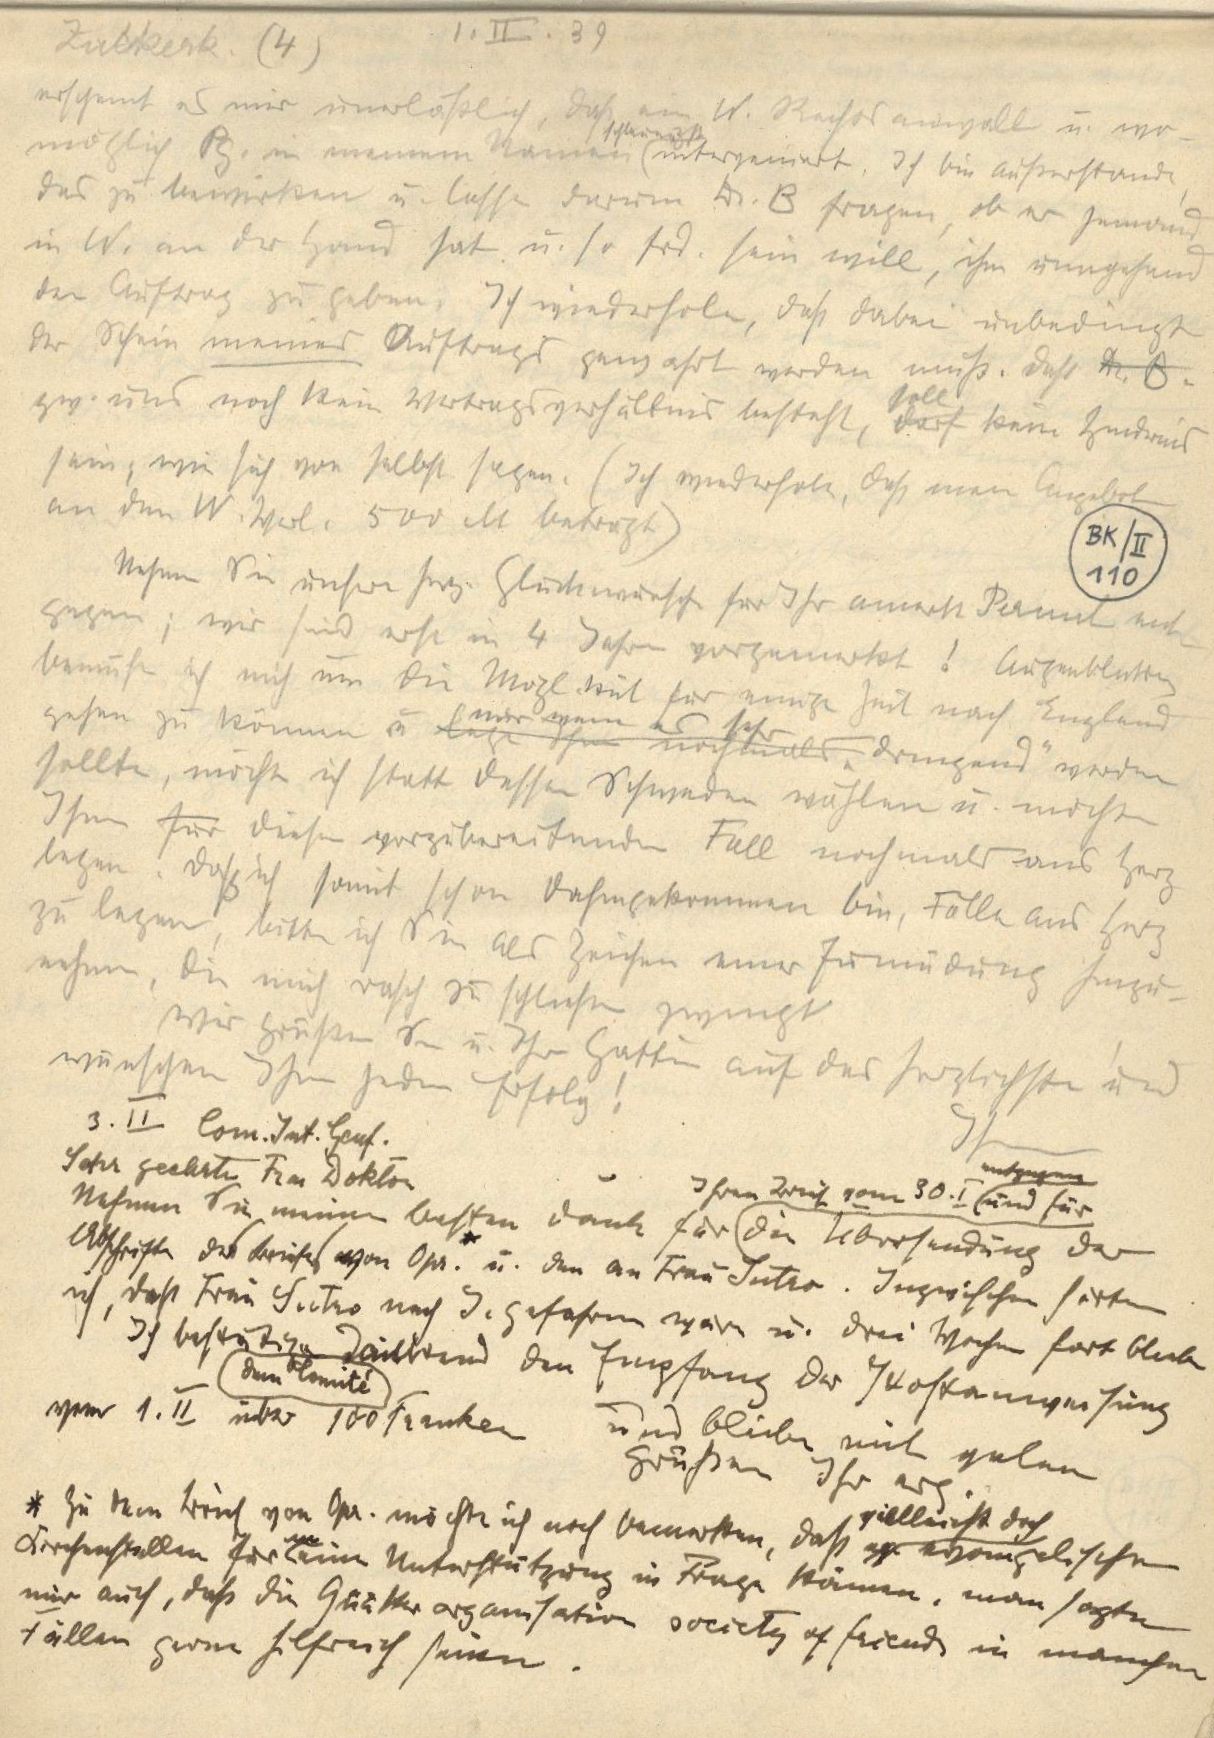 (4) 1. II. 39
erscheint es mir unerläßlich, daß ein W. Rechtsanwalt u. wo-
möglich Pg. in meinem Namen interveniert. Ich bin außerstande,
schleunigst
das zu bewirken u. lasse darum Dr. B fragen, ob er jemand
in W. an der Hand hat u. so frd. sein will, ihm umgehend
den Auftrag zu geben. Ich wiederhole, daß dabei unbedingt
der Schein meines Auftrags gewahrt werden muß. Daß Dr. B.
zw. uns noch kein Vertragsverhältnis besteht, darf kein Hindernis
soll
sein, wie sich von selbst sagen. (Ich wiederhole, daß mein Angebot
an den W. Verl. 500 M beträgt)
BK/II
110
Nehmen Sie unsere herz. Glückwünsche für Ihr amerik. Permit ent-
gegen; wir sind erst in 4 Jahren vorgemerkt! Augenblicklich
bemühe ich mich um die Möglkeit für einige Zeit nach England
gehen zu können u lege Ihnen nochmals „dringend" werden
nur wenn es sehr
sollte, möchte ich statt dessen Schweden wählen u. möchte
Ihnen für diesen vorzubereitenden Fall nochmals ans Herz
legen. Daß ich somit schon dahingekommen bin, Fälle ans Herz
zu legen, bitte ich Sie als Zeichen einer Ermüdung hinzu-
nehmen, die mich rasch zu schließen zwingt
Wir grüßen Sie u. Ihre Gattin auf das herzlichste und
wünschen Ihnen jeden Erfolg!
Ihr
3. II Com. Int. Genf.
Sehr geehrte Frau Doktor
Nehmen Sie meinen besten Dank für die Übersendung der
Ihren Brief vom 30. I und für
Abschriften des Briefes von Opr.* u. den an Frau Sutro. Inzwischen hörten
ich, daß Frau Sutro nach I. gefahren wäre u. drei Wochen fort bliebe
Ich bestätige dankend den Empfang der Postanweisung
dem Comité
vom 1. II über 100 Franken und bleibe mit vielen
Grüßen Ihr erg.
* Zu dem Brief von Opr. möchte ich noch bemerken, daß evangelische
vielleicht doch
Kirchenstellen für eine Unterstützung in Frage kämen. man sagte
mir auch, daß die Quäkerorganisation society of friends in manchen
Fällen gerne hilfreich seien.